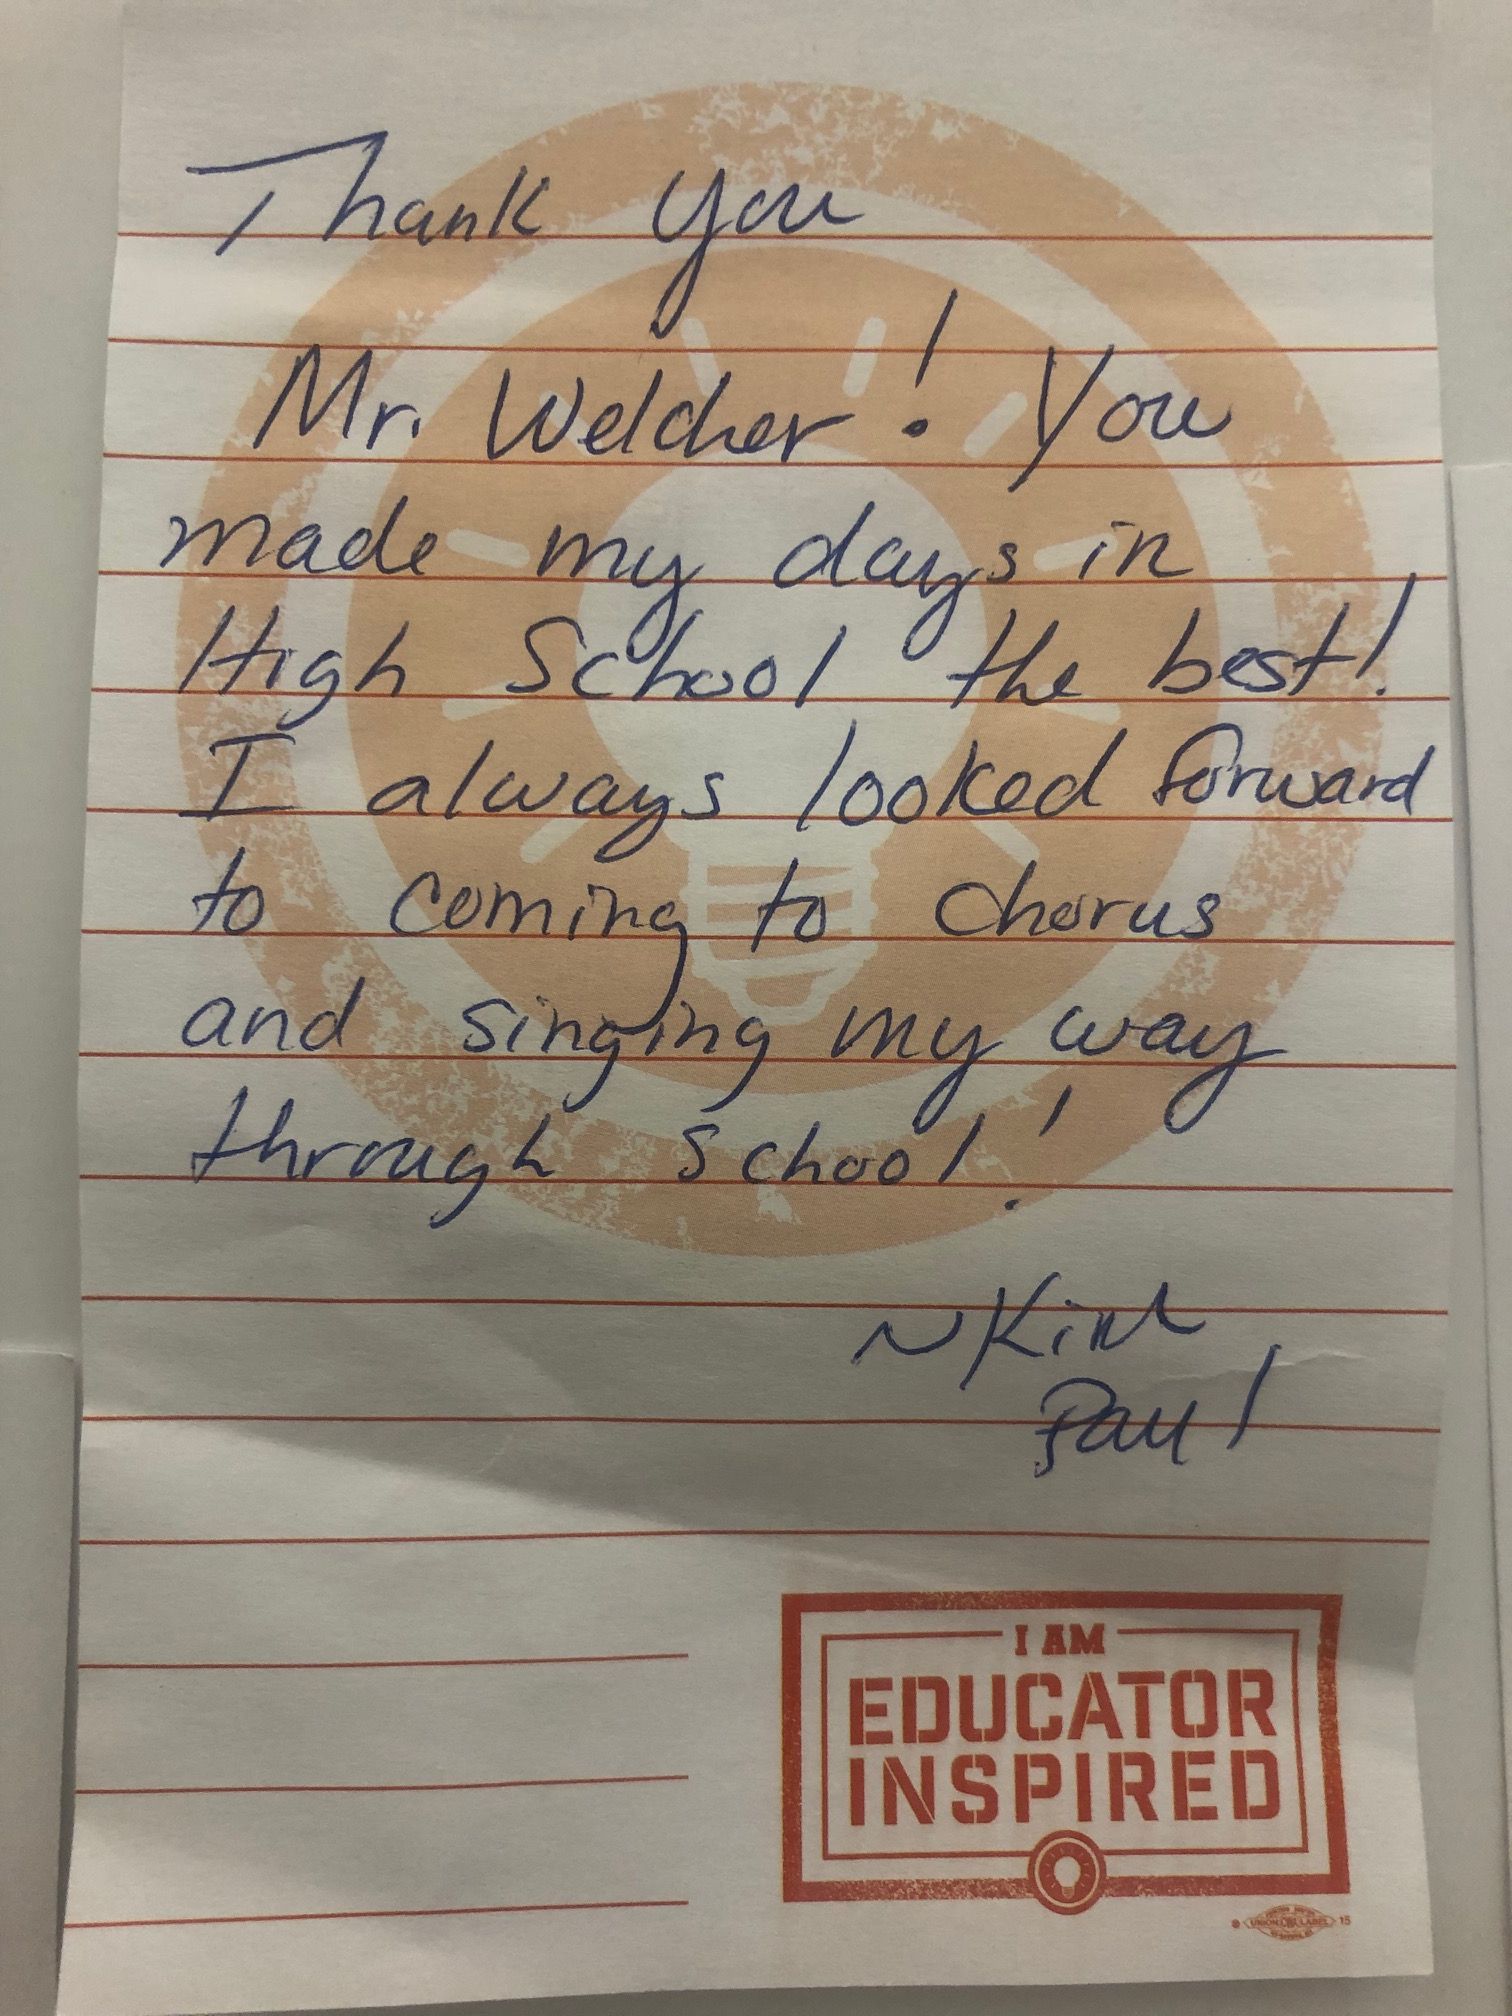 Thank you
Mr. Welcher! You
made my days in
High School the best!
I always looked forward
to coming to chorus
and singing my way
through school!
~Kim
Paul
I AM
EDUCATOR
INSPIRED
UNION LABEL 15